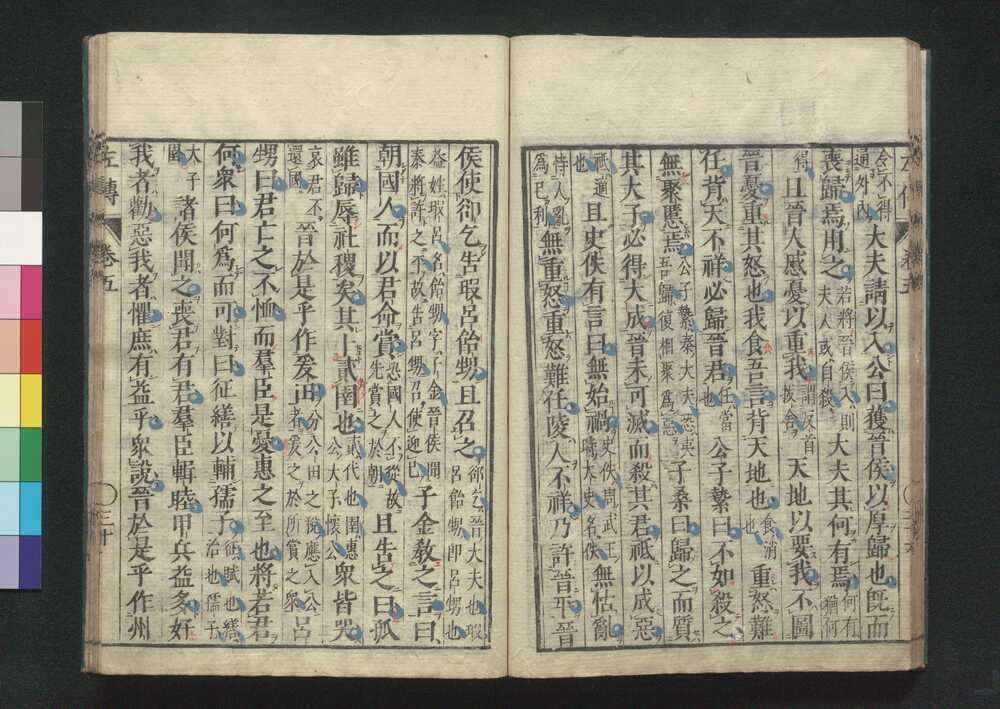 左傳 卷五
令不得通外內大夫請以入公曰獲晉侯以厚歸也旣而
喪歸焉用之若將晉侯入則夫人或自殺大夫其何有焉何有猶何
得且晉人慼憂以重我謂反首拔舍天地以要我不圖
晉憂重其怒也我食吾言背天地也食消也重怒難
任背天不祥必歸晉君任當也公子縶曰不如殺之
無聚慝焉公子縶秦大夫恐夷吾歸復相聚爲惡子桑曰歸之而質
其大子必得大成晉未可滅而殺其君祗以成惡
祗適也且史佚有言曰無始禍史佚周武王時太史名佚無怙亂
恃人亂爲己利無重怒重怒難任陵人不祥乃許晉平晉
侯使郤乞告瑕呂飴甥且召之郤乞晉大夫也瑕呂飴甥即呂甥也
蓋姓瑕呂名飴甥字子金晉侯聞秦將許之平故告呂甥召使迎己子金敎之言曰
朝國人而以君命賞恐國人不從故先賞之於朝且告之曰孤
雖歸辱社稷矣其卜貳圉也貳代也圉惠公大子懷公衆皆哭
哀君不還國晉於是乎作爰田分公田之稅應入公者爰之於所賞之衆呂
甥曰君亡之不恤而羣臣是憂惠之至也將若君
何衆曰何爲而可對曰征繕以輔孺子征賦也繕治也孺子
大子圉諸侯聞之喪君有君羣臣輯睦甲兵益多好
我者勸惡我者懼庶有益乎衆說晉於是乎作州
左傳 卷五 三十